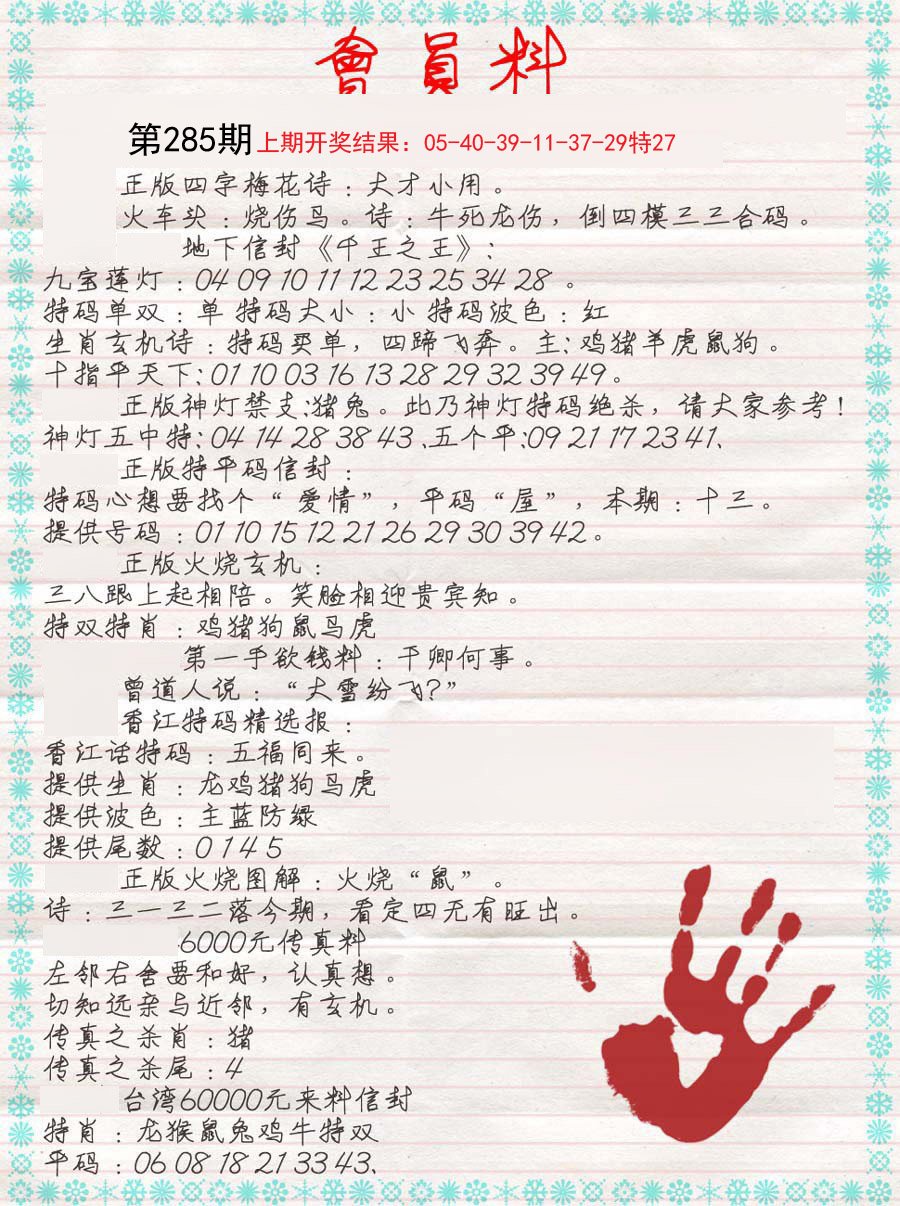 會員料
第285期 上期开奖结果：05-40-39-11-37-29特27
正版四字梅花诗：大才小用。
火车头：烧伤鸟。诗：牛死龙伤，倒四模三三合码。
地下信封《千王之王》：
九宝莲灯：04 09 10 11 12 23 25 34 28 。
特码单双：单 特码大小：小 特码波色：红
生肖玄机诗：特码买单，四蹄飞奔。主：鸡猪羊虎鼠狗。
十指平天下：01 10 03 16 13 28 29 32 39 49。
正版神灯禁支：猪兔。此乃神灯特码绝杀，请大家参考！
神灯五中特：04 14 28 38 43 、五个平：09 21 17 23 41、
正版特平码信封：
特码心想要找个“爱情”，平码“屋”，本期：十三。
提供号码：01 10 15 12 21 26 29 30 39 42。
正版火烧玄机：
三八跟上起相陪。笑脸相迎贵宾知。
特双特肖：鸡猪狗鼠马虎
第一手欲钱料：干卿何事。
曾道人说：“大雪纷飞?”
香江特码精选报：
香江话特码：五福同来。
提供生肖：龙鸡猪狗马虎
提供波色：主蓝防绿
提供尾数：0 1 4 5
正版火烧图解：火烧“鼠”。
诗：三一三二落今期，看定四无有旺出。
6000元传真料
左邻右舍要和好，认真想。
切知远亲与近邻，有玄机。
传真之杀肖：猪
传真之杀尾：4
台湾60000元来料信封
特肖：龙猴鼠兔鸡牛特双
平码：06 08 18 21 33 43、